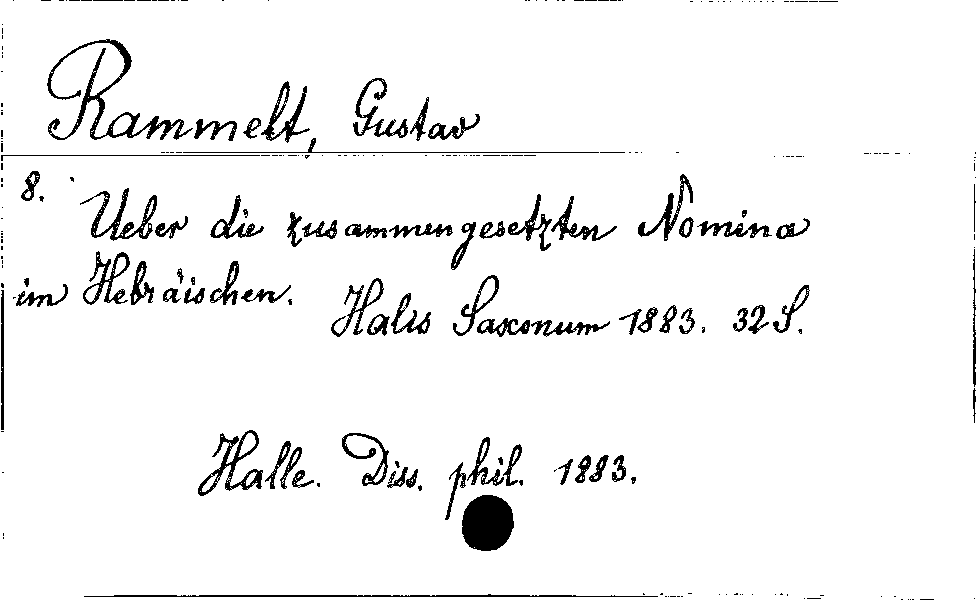 Rammelt, Gustav
8.
Ueber die zusammengesetzten Nomina
im Hebräischen.
Halis Saxonum 1883. 32 S.
Halle. Diss. phil. 1883.